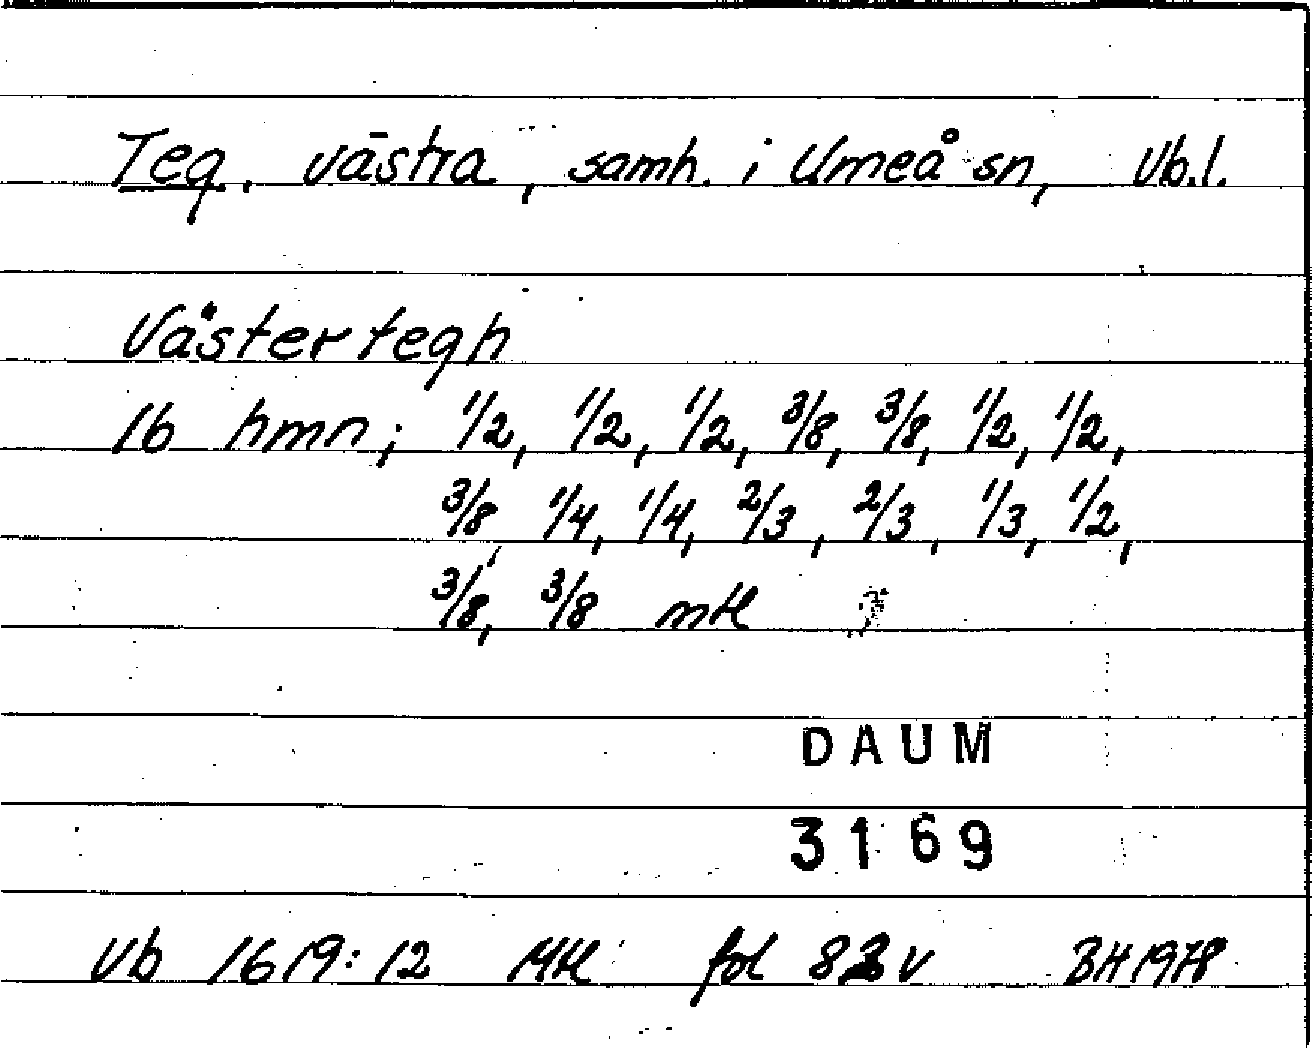 Teg, västra, samh. i Umeå sn, Vb.l.
Västertegh
16 hmn; 1/2, 1/2, 1/2, 3/8, 3/8, 1/2, 1/2,
3/8, 1/4, 1/4, 2/3, 2/3, 1/3, 1/2,
3/8, 3/8 mtl
DAUM
3169
Vb 1619:12 Mtl fol v BH 1978